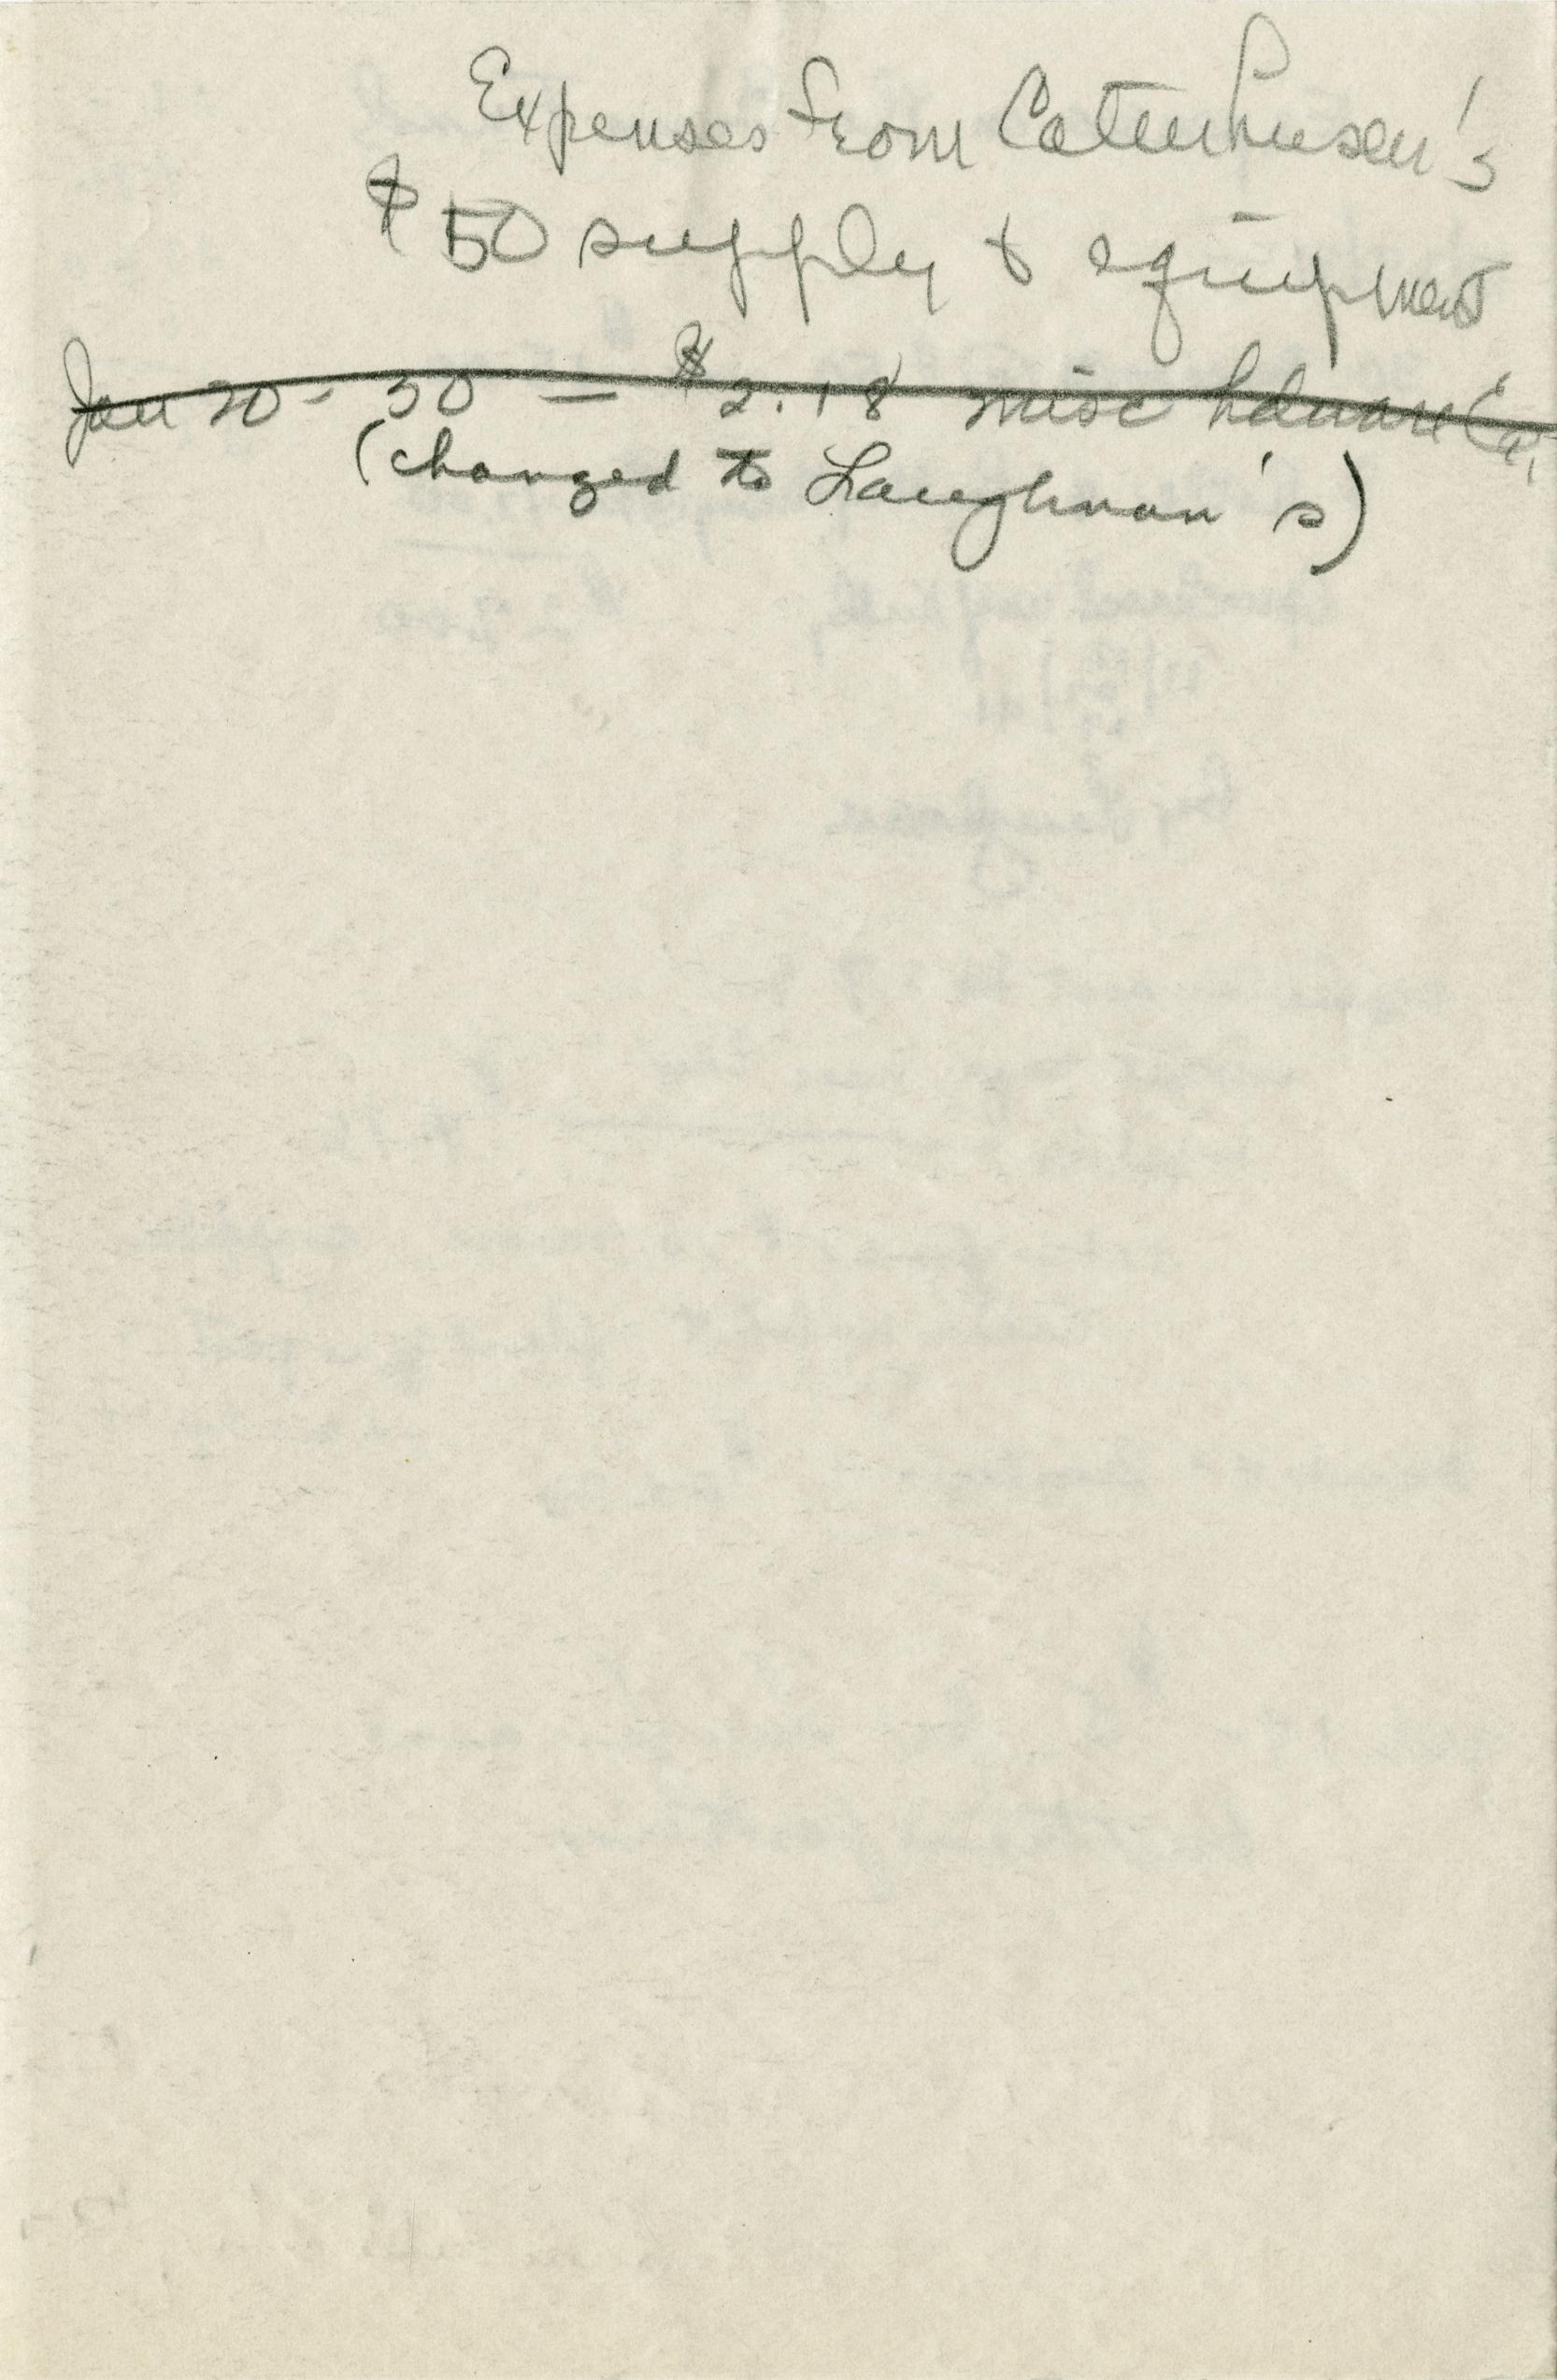 Expenses from Catenhusen's
$50 supply & equipment
Jan 20-50 — $2.18 misc hdware
(changed to Laughnan's)